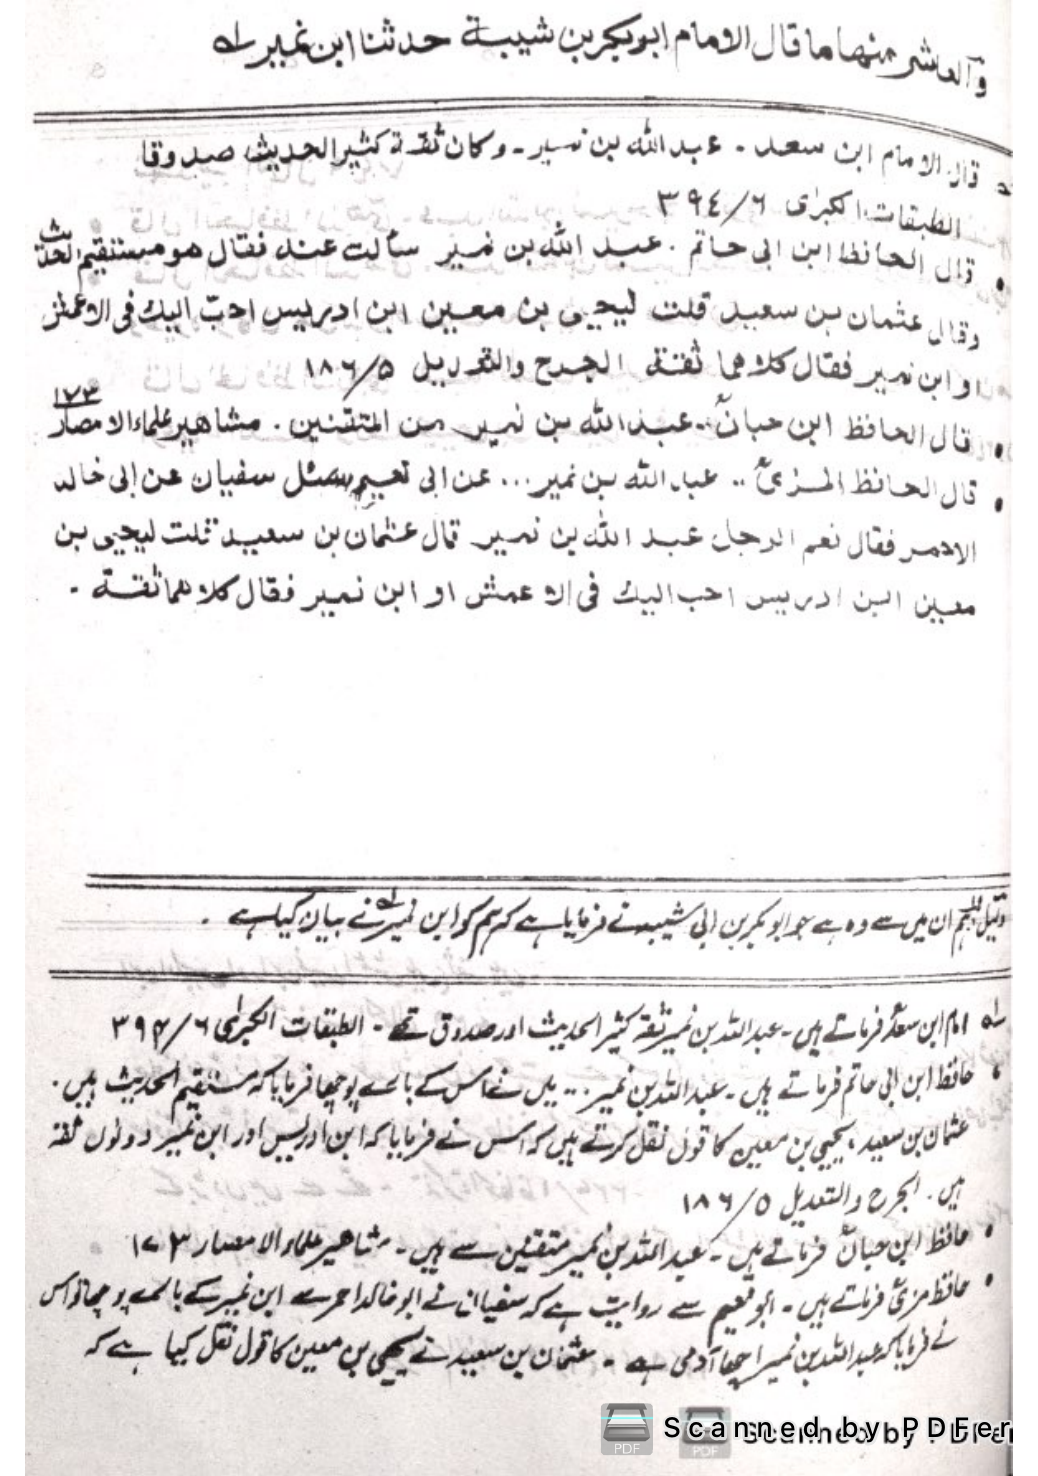 والعاشر منها ما قال الامام ابو بكر بن شيبة حدثنا ابن نمير له
له قال الامام ابن سعد - عبد الله بن نمير - وكان ثقة كثير الحديث صدوقا
الطبقات الكبرى ٦/٣٩٤
• قال الحافظ ابن ابى حاتم . عبد الله بن نمير سألت عنه فقال هو مستقيم الحديث
وقال عثمان بن سعيد قلت ليحيى بن معين ابن ادريس احبّ اليك فى الاعمش
او ابن نمير فقال كلاهما ثقة الجرح والتعديل ٥/١٨٦
• قال الحافظ ابن حبانؒ - عبد الله بن نمير من المتقنين . مشاهير علماء الامصار ١٧٣
• قال الحافظ المزىؒ .. عبد الله بن نمير... عن ابى نعيم سئل سفيان عن ابى خالد
الاحمر فقال نعم الرجل عبد الله بن نمير قال عثمان بن سعيد قلت ليحيى بن
معين ابن ادريس احب اليك فى الاعمش او ابن نمير فقال كلاهما ثقة -
ان میں سے وہ ہے جو ابو بکر بن ابی شیبہ نے فرمایا ہے کہ ہم کو ابن نمیر لہ نے بیان کیا ہے .
لہ امام ابن سعدؒ فرماتے ہیں - عبد اللہ بن نمیر ثقہ کثیر الحدیث اور صدوق تھے - الطبقات الکبرٰی ٦/٣٩٤
• حافظ ابن ابی حاتم فرماتے ہیں - عبد اللہ بن نمیر ... میں نے اس کے بارے پوچھا فرمایا کہ مستقیم الحدیث ہیں .
عثمان بن سعید ، یحیی بن معین کا قول نقل کرتے ہیں کہ اس نے فرمایا کہ ابن ادریس اور ابن نمیر دونوں ثقہ
ہیں . الجرح والتعدیل ٥/١٨٦
• حافظ ابن حبانؒ فرماتے ہیں - عبد اللہ بن نمیر متقنین سے ہیں - مشاهیر علماء الامصار ١٧٣
• حافظ مزیؒ فرماتے ہیں - ابو نعیم سے روایت ہے کہ سفیان نے ابو خالد احمر سے ابن نمیر کے بارے پوچھا تو اس
نے فرمایا کہ عبد اللہ بن نمیر اچھا آدمی ہے - عثمان بن سعید نے یحیی بن معین کا قول نقل کیا ہے کہ
Scanned by PDFer
Scanned by PDFer